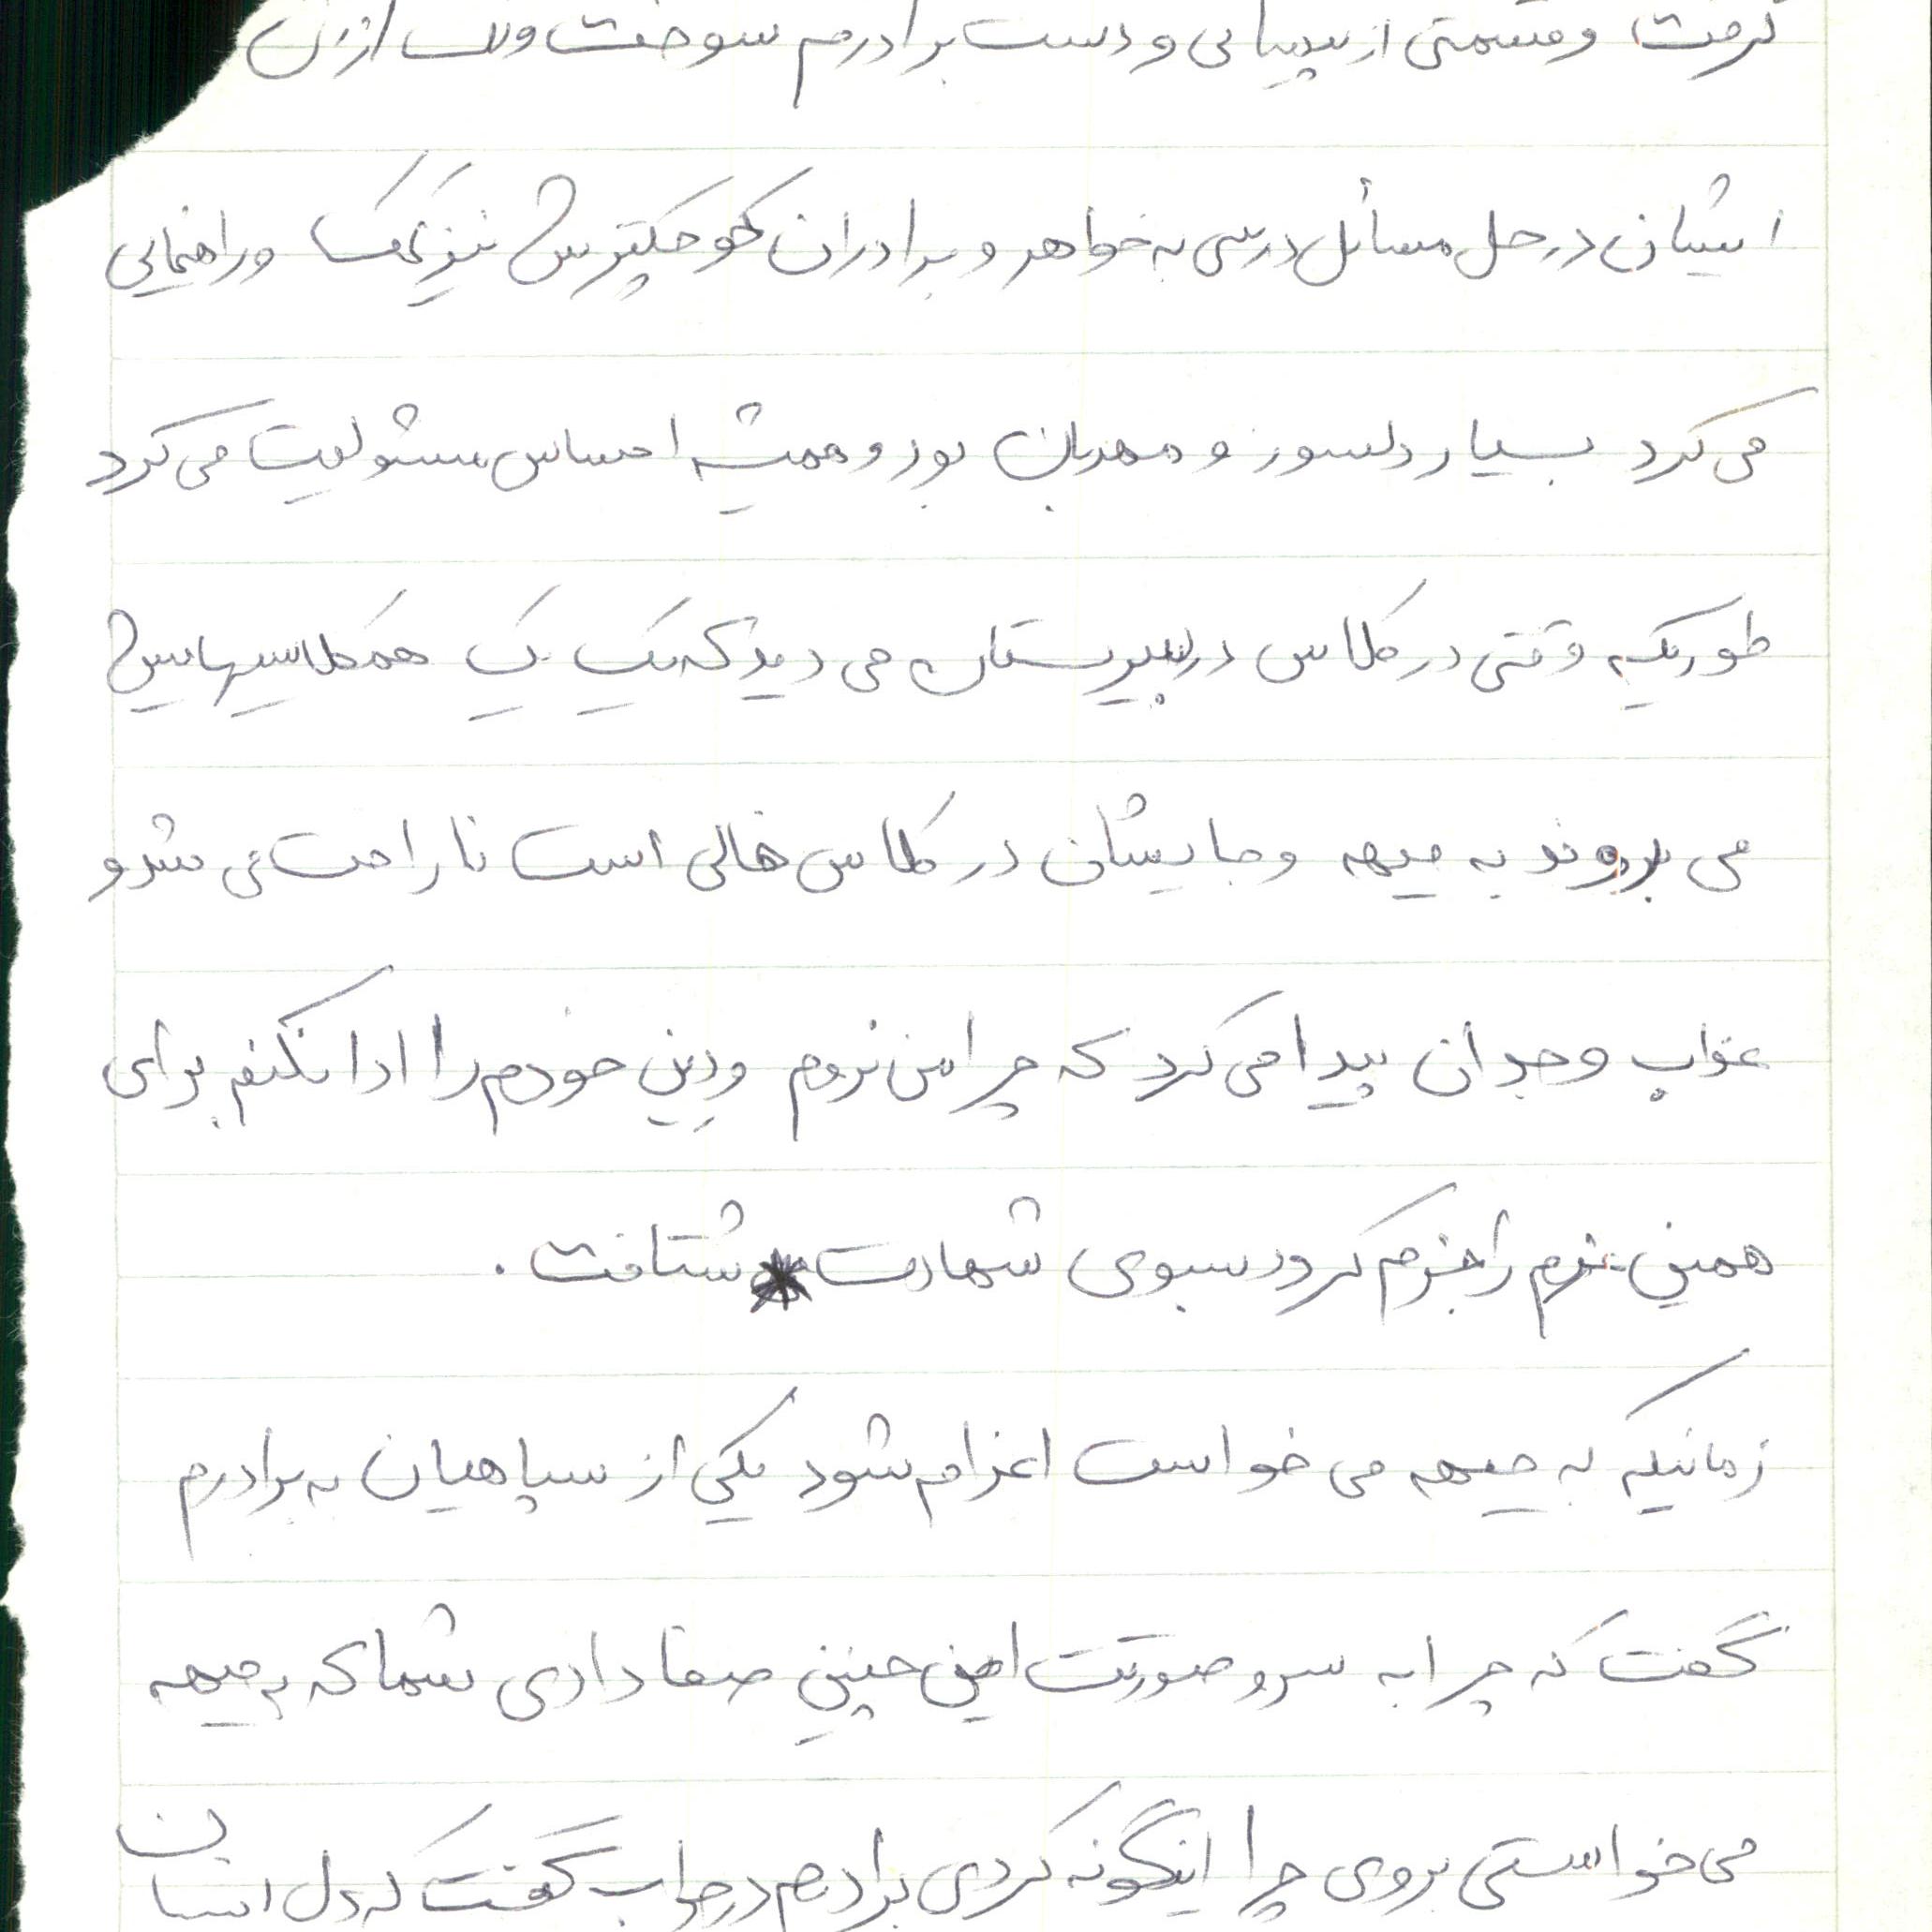 گرفت و قسمتی از پیشانی و دست برادرم سوخت
ایشان در حل مسائل درسی به خواهر و برادران کوچکترش نیز کمک و راهنمایی
می کرد بسیار دلسوز و مهربان بود و همیشه احساس مسئولیت می کرد
طوریکه وقتی در کلاس در دبیرستان می دید که یک یک همکلاسیهایش
می روند به جبهه و جایشان در کلاس خالی است ناراحت می شد و
عذاب وجدان پیدا می کرد که چرا من نروم و دین خودم را ادا نکنم برای
همین عزم را جزم کرد و بسوی شهادت شتافت .
زمانیکه به جبهه می خواست اعزام شود یکی از سپاهیان به برادرم
گفت که چرا به سر و صورتت این چنین صفا دادی شما که به جبهه
می خواستی بروی چرا اینگونه کردی برادرم در جواب گفت که دل انسان